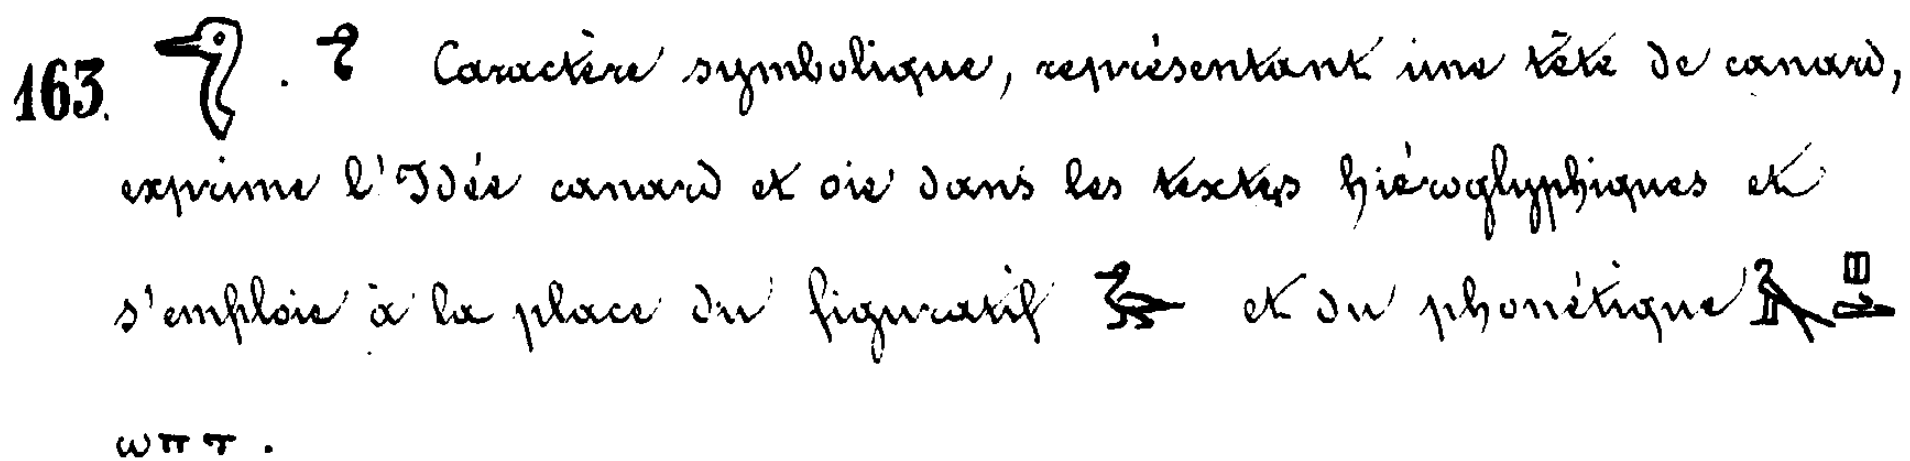 163. 𓅮 . 𓅮 Caractère symbolique, représentant une tête de canard,
exprime l'Idée canard et oie dans les textes hiéroglyphiques et
s'emploie à la place du figuratif 𓅭 et du phonétique 𓄿𓊪𓏏
ωπτ .